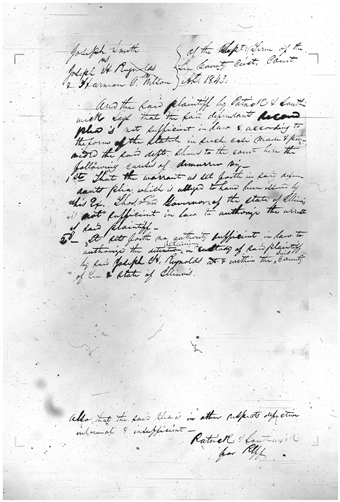 Joseph Smith } of the Sept. Term of the
vs } Lee County Circt. Court
Joseph H Reynolds } AD. 1843.
& Harmon T. Wilson
And the said plaintiff by Patrick & South
wick says that the said defendant second
Plea is not sufficient in law & according to
the form of the Statute in such case made & pro
vided the said deft shows to the court here the
following causes of demurrer viz—
1st That the warrant as set forth in said defen
dants Plea, which is alleged to have been issued by
his Ex. Thos. Governor of the state of Illinois
is not sufficient in law to authorize the arrest
of said plaintiff—
2— It sets forth no authority sufficient in law to
authorize the in custody of said plaintiff
by said Joseph H. Reynolds at & within the County
of Lee & State of Illinois.
Also, that the said plea is in other respects defective
informal & insufficient—
Patrick & Southwick
for Plff